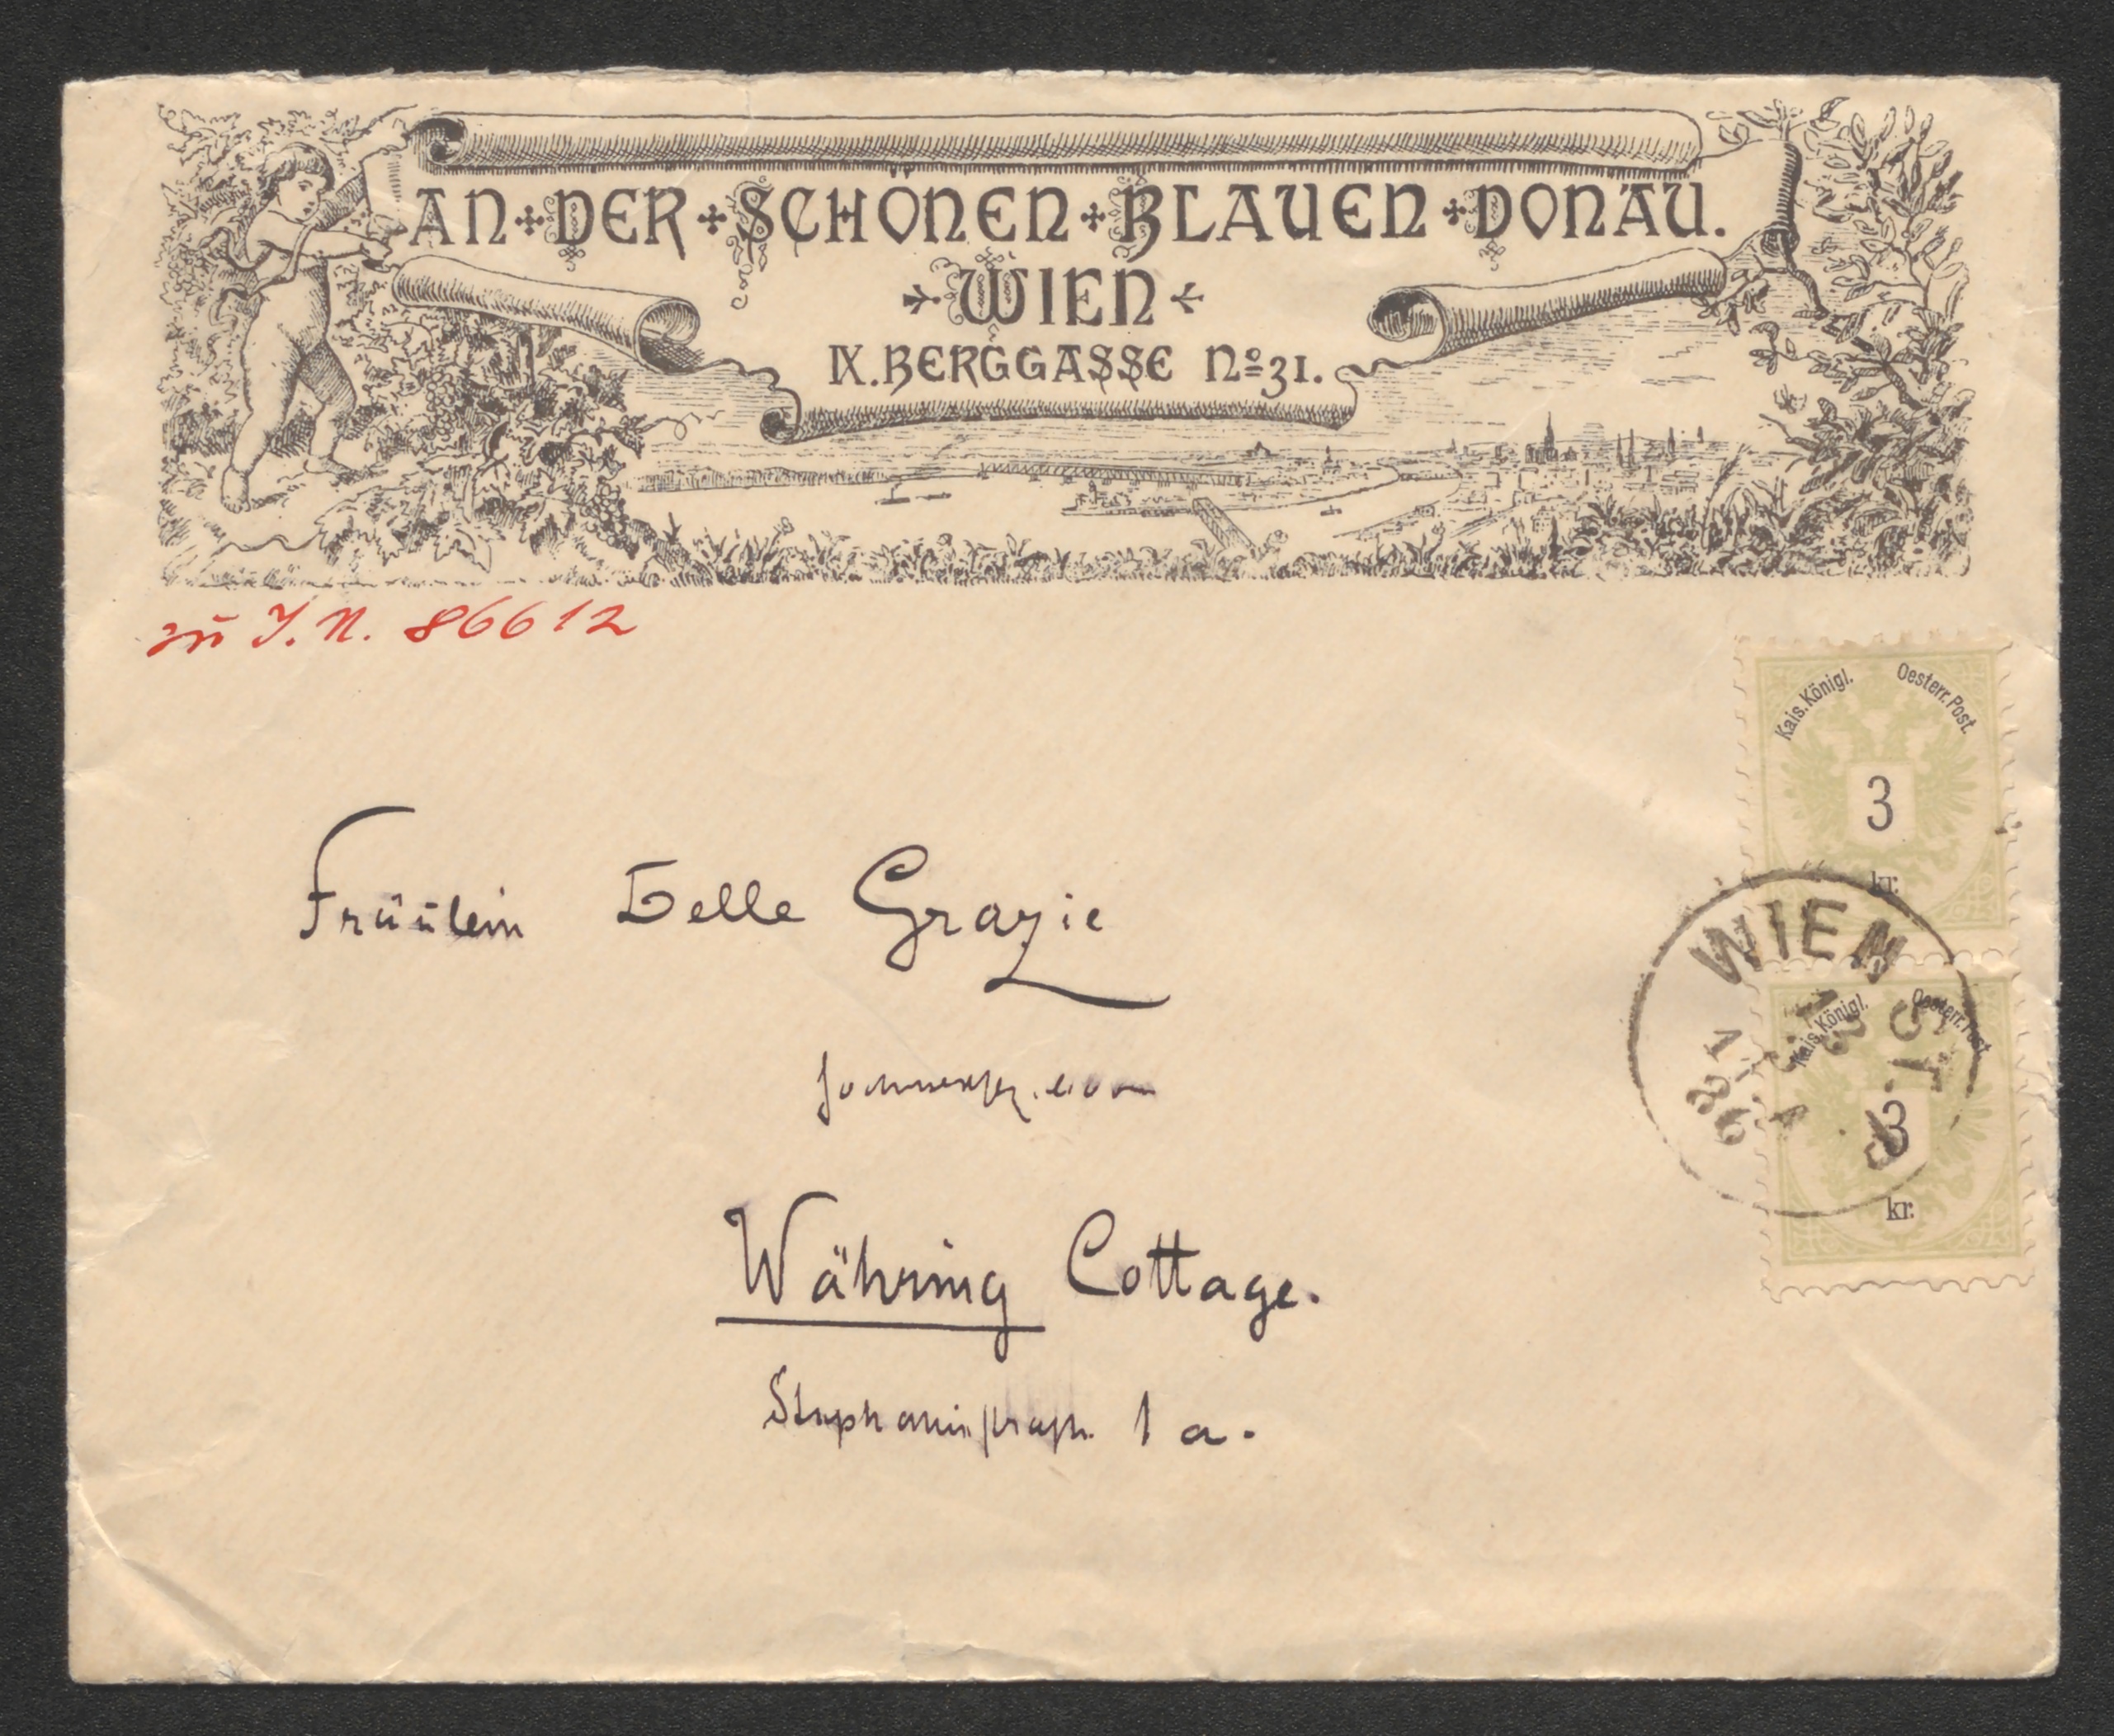 AN DER SCHÖNEN BLAUEN DONAU.
WIEN
IX. BERGGASSE No 31.
zu I. N. 86612
Kais. Königl. Oesterr. Post.
3
kr.
WIEN
Kais. Königl. Oesterr. Post
3
kr.
Fräulein Delle Grazie
Währing Cottage.
Stephaniestraße 1 a.